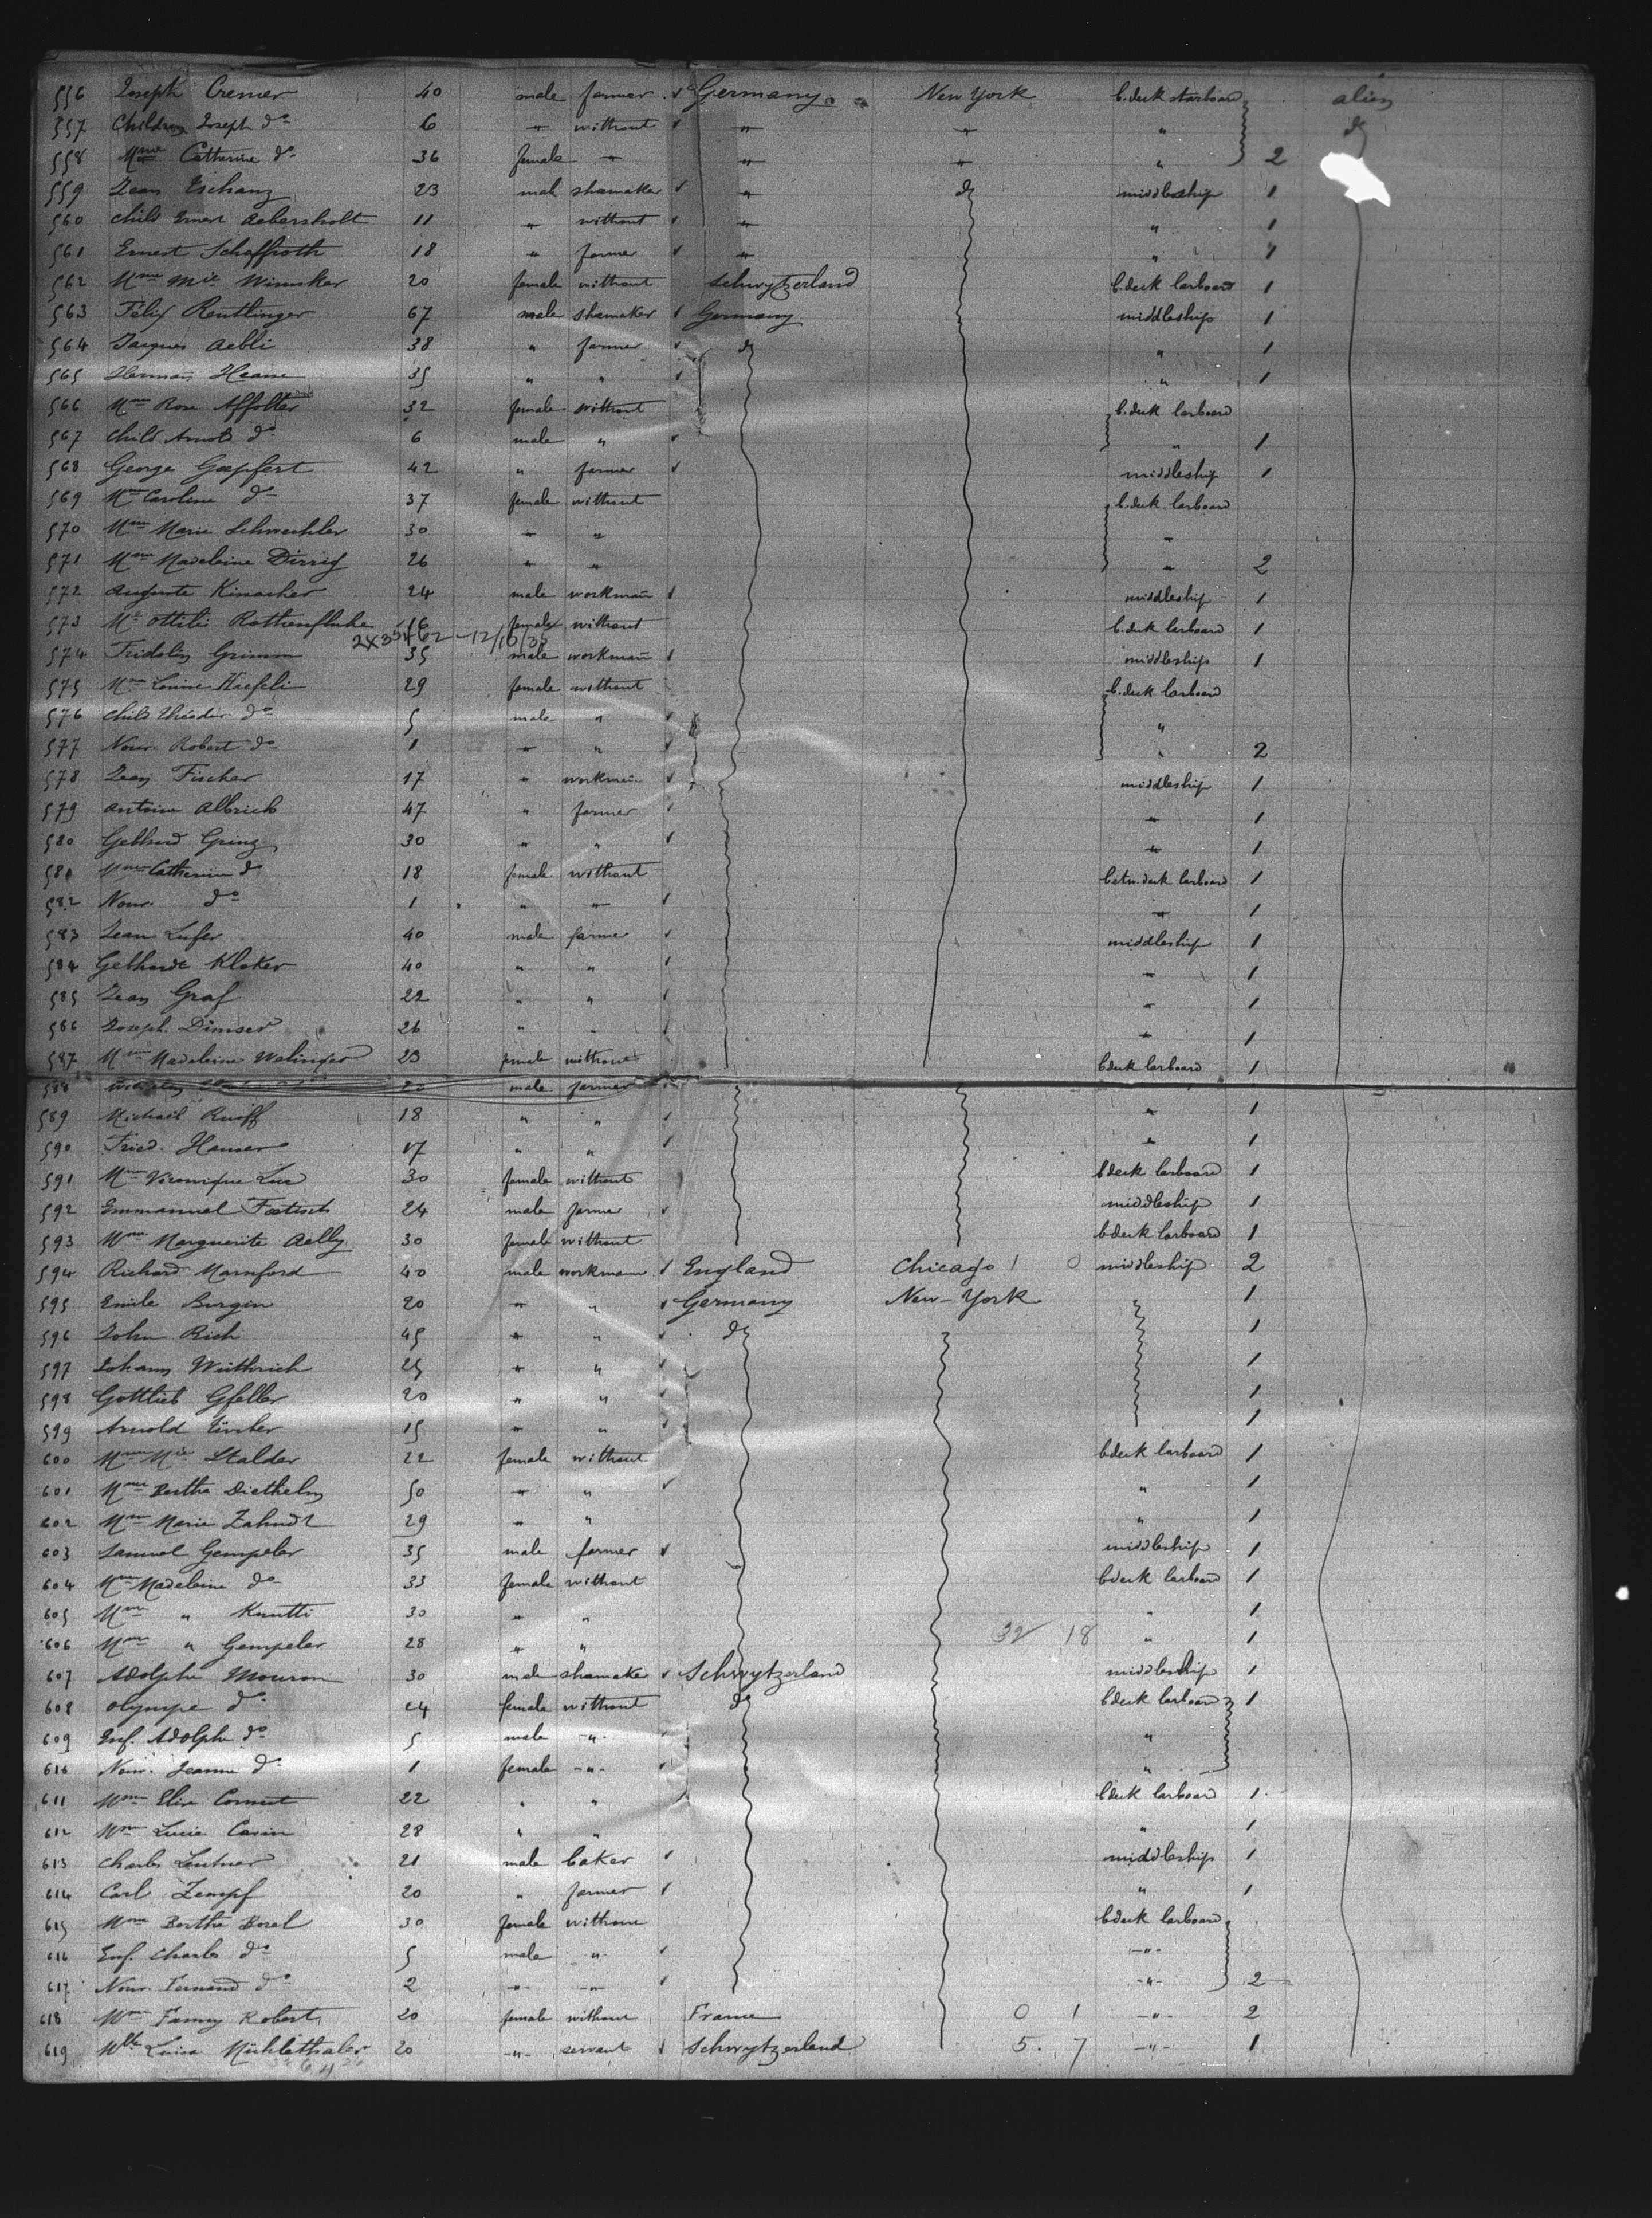 556 Joseph Cremer 40 male farmer Germany New York b.deck starboard alien
557 Children Joseph do 6 " without " " " do
558 Mme Catherine do 36 female " " " " 2
559 Jean Tschanz 23 male shamaker " do middleship 1
560 child Ernest Aebersholt 11 " without " " 1
561 Ernest Schaffroth 18 " farmer " " 1
562 Mme Mie 20 female without Schwytzerland b.deck larboard 1
563 Félix Reutlinger 67 male shamaker Germany middleship 1
564 Jacques Aebli 38 " farmer do " 1
565 Hermann 35 " " " 1
566 Mme Rose Affolter 32 female without b.deck larboard
567 child Arnold do 6 male " " 1
568 George Goepfert 42 " farmer middleship 1
569 Mme Caroline do 37 female without b.deck larboard
570 Mme Marie Schwechler 30 " " "
571 Mme Madeleine Dirrig 26 " " " 2
572 Auguste Kinacher 24 male workman middleship 1
573 Me Ottilie Rothenfluhe 16 female without b.deck larboard 1
2X35462-12/10/35
574 Fridolin Grimm 35 male workman middleship 1
575 Mme Louise Haefeli 29 female without b.deck larboard
576 child Théodor do 5 male " "
577 Nour. Robert do 1 " " " 2
578 Jean Fischer 17 " workman middleship 1
579 Antoine Albrich 47 " farmer " 1
580 Gebhard 30 " " " 1
581 Mme Catherine do 18 female without betw.deck larboard 1
582 Nour. do 1 " " " 1
583 Jean Lufer 40 male farmer middleship 1
584 Gebhardt Kloker 40 " " " 1
585 Jean Graf 22 " " " 1
586 Joseph 26 " " " 1
587 Mme Madeleine 23 female without bdeck larboard 1
588 male farmer
589 Michael Ruoff 18 " " " 1
590 Fried. Hauser 17 " " " 1
591 Mme Véronique 30 female without bdeck larboard 1
592 Emmanuel 24 male farmer middleship 1
593 Mme Marguerite Aelly 30 female without bdeck larboard 1
594 Richard Marnford 40 male workman England Chicago 1 0 middleship 2
595 Emile Burgin 20 " " Germany New-York 1
596 John Rich 45 " " do 1
597 Johann Wüthrich 25 " " 1
598 Gottlieb Gfeller 20 " " 1
599 Arnold 15 " " 1
600 Mme Mie Stalder 22 female without bdeck larboard 1
601 Mme Bertha Diethelm 50 " " " 1
602 Mme Marie Zahndt 29 " " " 1
603 Samuel Gempeler 35 male farmer middleship 1
604 Mme Madeleine do 33 female without bdeck larboard 1
605 Mme " Knutti 30 " " " 1
606 Mme " Gempeler 28 " " 32 18 " 1
607 Adolphe Mouron 30 male shamaker Schwytzerland middleship 1
608 Olympe do 24 female without do bdeck larboard 1
609 Enf. Adolphe do 5 male " "
610 Nour. Jeanne do 1 female " "
611 Mme Elise Cornut 22 " " bdeck larboard 1
612 Mme Lucie 28 " " " 1
613 Charles Lentner 21 male baker middleship 1
614 Carl Zempf 20 " farmer " 1
615 Mme Berthe Borel 30 female without bdeck larboard
616 Enf. Charles do 5 male " "
617 Nour. Fernand do 2 " " " 2
618 Mme Fanny Robert 20 female without France 0 1 " 2
619 Mlle Luisa Mühlethaler 20 " servant Schwytzerland 5. 7 " 1